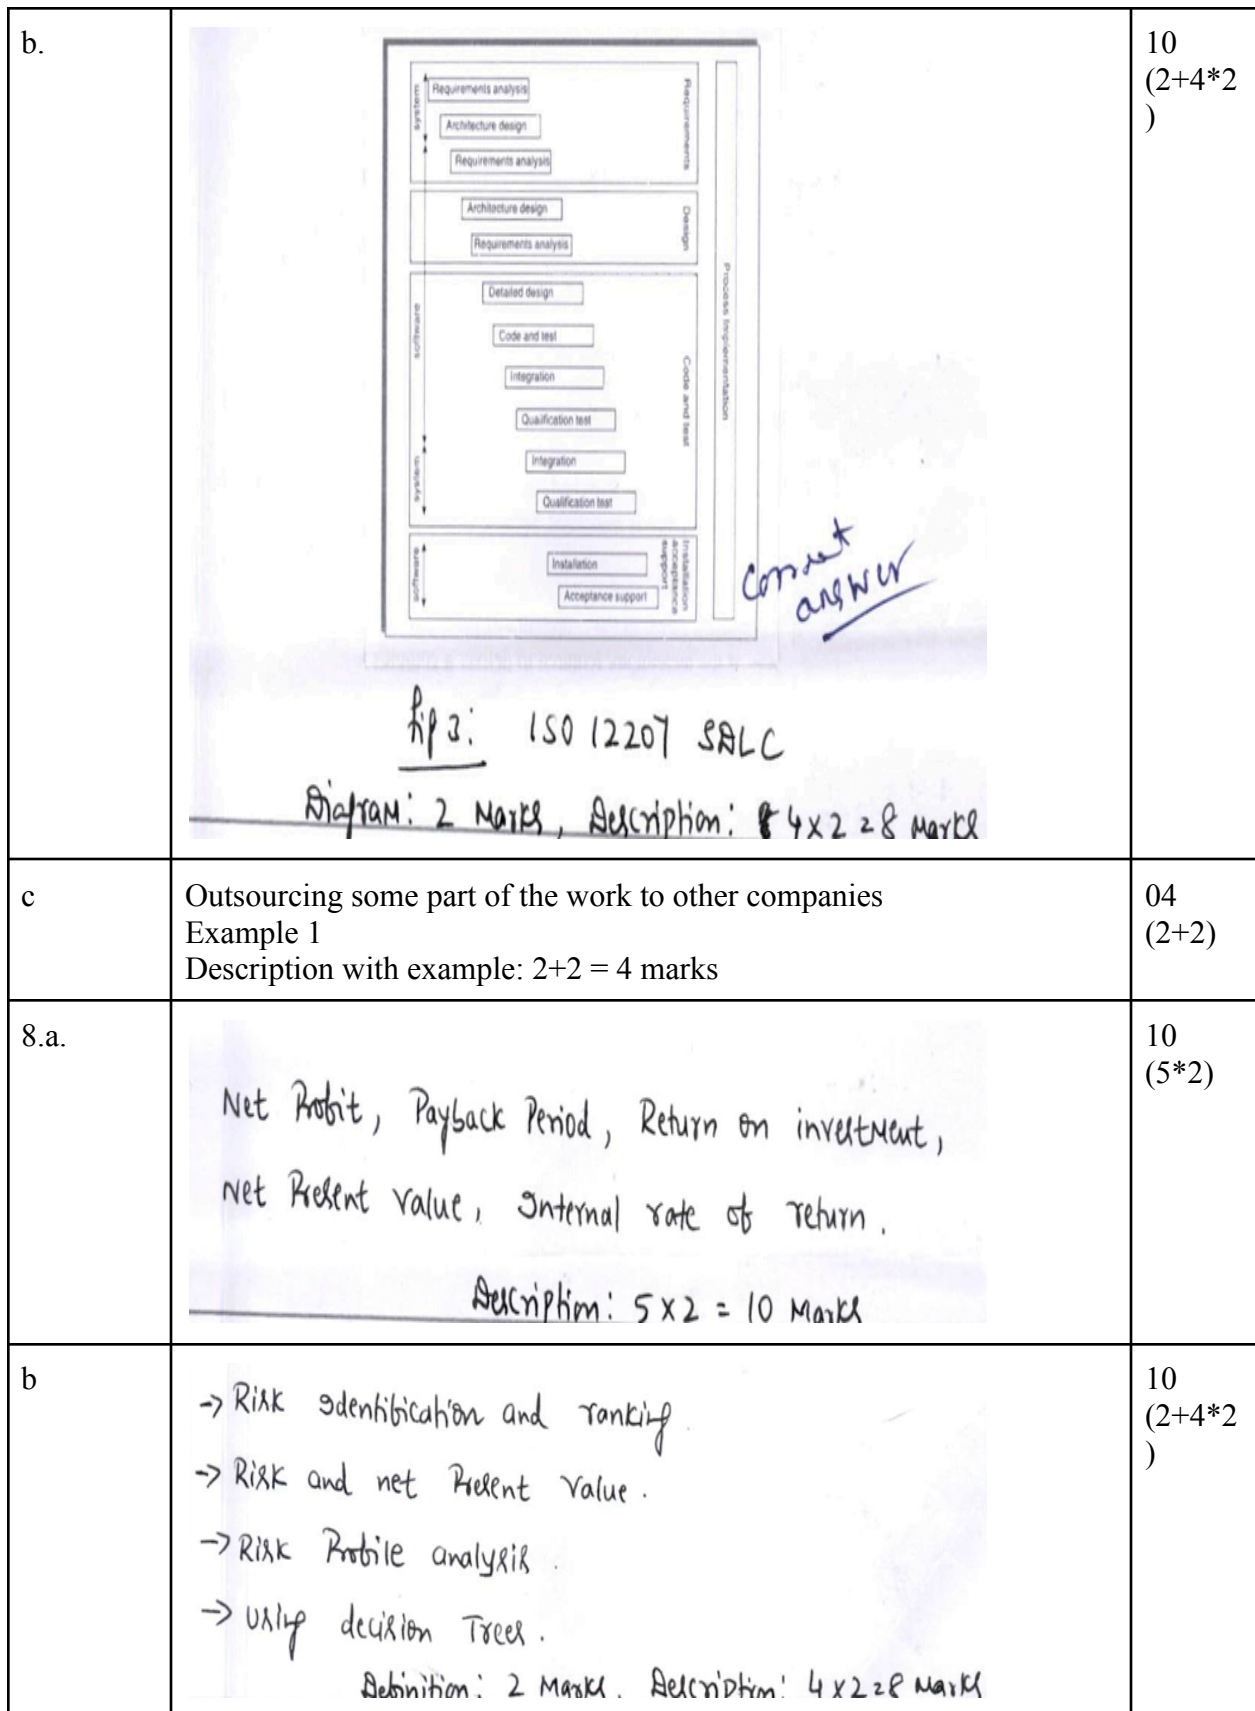 b.
10
(2+4*2
)
system
Requirements analysis
Architecture design
Requirements analysis
Requirements
Architecture design
Requirements analysis
Design
software
Detailed design
Code and test
Integration
Qualification test
Integration
Qualification test
Code and test
system
software
Installation
Acceptance support
Installation
acceptance
support
Process Implementation
Correct
answer
Fig 3: ISO 12207 SDLC
Diagram: 2 Marks, Description: 4 x 2 = 8 Marks
c
Outsourcing some part of the work to other companies
Example 1
Description with example: 2+2 = 4 marks
04
(2+2)
8.a.
Net Profit, Payback Period, Return on investment,
Net Present Value, Internal rate of return.
Description: 5 x 2 = 10 Marks
10
(5*2)
b
-> Risk Identification and ranking.
-> Risk and net Present Value.
-> Risk Profile analysis.
-> Using decision Trees.
Definition: 2 Marks, Description: 4 x 2 = 8 Marks
10
(2+4*2
)